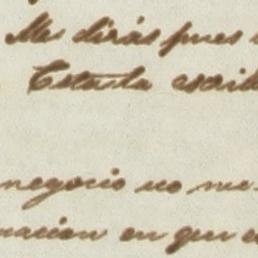 Me dirás pues
Esta la escrib
negocio no me
nacion en que e